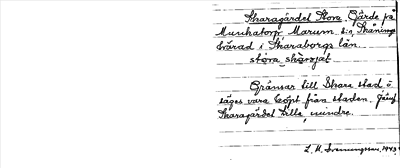 Skaragärdet Stora, Gärde på
Munkatorp Marum s:n, Skånings
härad i Skaraborgs län.
stora skaragät
Gränsar till Skara stad o
säges vara köpt från staden. Jämf
Skaragärdet Lilla, mindre.
L. M. Svenungsson, 1943